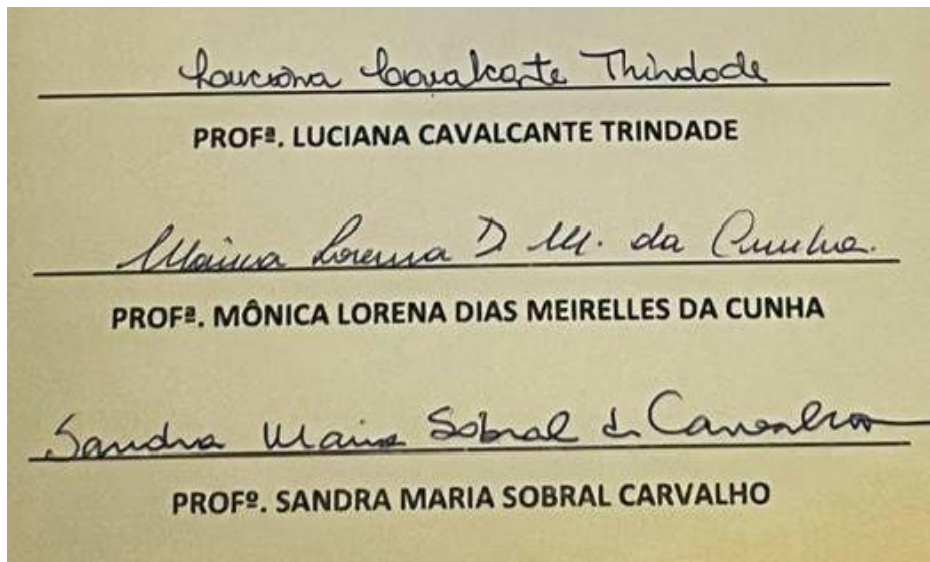 Luciana Cavalcante Trindade
PROFª. LUCIANA CAVALCANTE TRINDADE
Mônica Lorena D. M. da Cunha.
PROFª. MÔNICA LORENA DIAS MEIRELLES DA CUNHA
Sandra Maria Sobral de Carvalho
PROFº. SANDRA MARIA SOBRAL CARVALHO